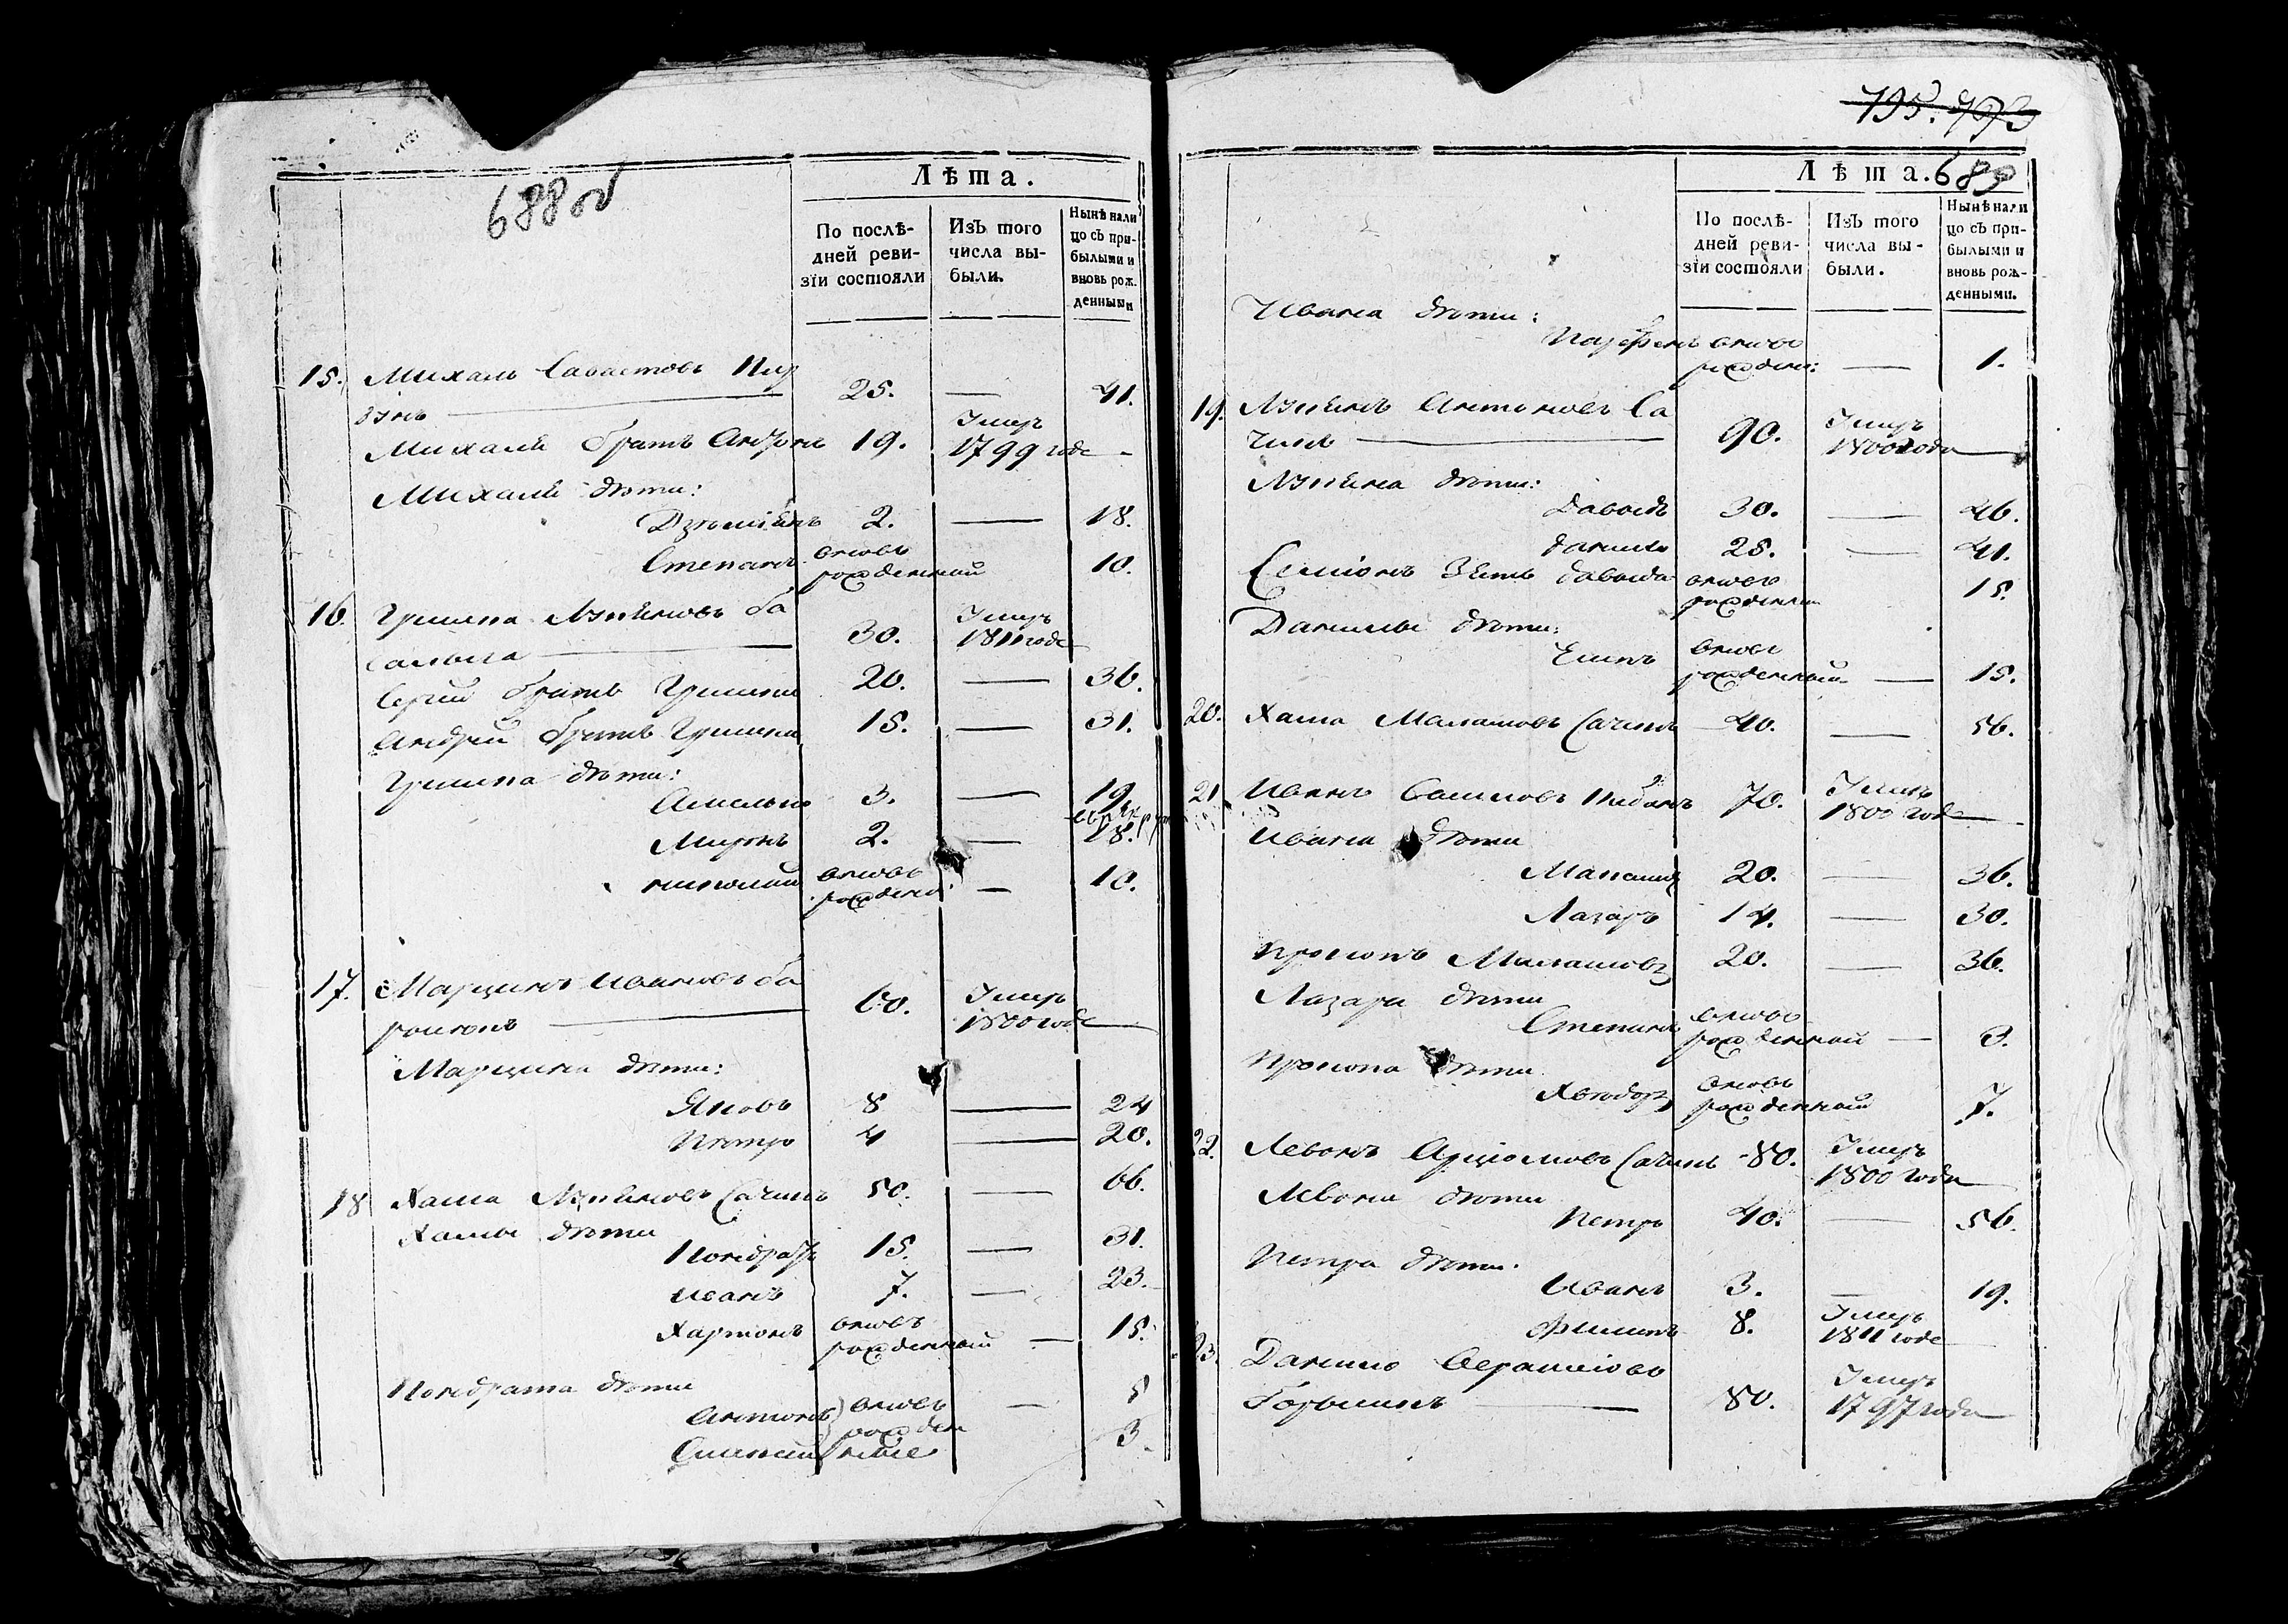 688 об
Лѣта.
По послѣ-
дней реви-
зїи состояли
Изъ того
числа вы-
были.
Нынѣ нали
цо съ при-
былыми и
вновь рож-
денными
15. Михаль Савастовъ
25. — 41.
Михалы братъ 19. Умеръ
1799 годе —
Михалы дѣти:
2. — 18.
Степанъ вновь
рожденный 10.
16. Лукьяновъ Ба
30. Умеръ
1811 годе
Сергий братъ 20. — 36.
Андрей братъ 15. — 31.
дѣти:
3. — 19.
Миронъ 2. — 18.
вновь
рожден: — 10.
17. Марцинъ Ивановъ Ба
60. Умеръ
1800 годе
Марцина дѣти:
Яковъ 8 — 24
Петръ 4 — 20.
18 Хама Лукьяновъ Сачинъ 50. — 66.
Хамы дѣти
Кондратъ 15. — 31.
Иванъ 7. — 23.
Харитонъ вновь
рожденный — 15.
Кондрата дѣти
Антонъ вновь — 5
рожден
ные 3.
795. 793
Лѣта. 689
По послѣ-
дней реви-
зїи состояли
Изъ того
числа вы-
были.
Нынѣ нали
цо съ при-
былыми и
вновь рож-
денными.
Ивана дѣти:
вновь
рожден: — 1.
19. Лукьянъ Антоновъ Са
чинъ — 90. Умеръ
1800 года
Лукьяна дѣти:
Давыдъ 30. — 46.
Данило 25. — 41.
Семіонъ зять Давыда вновь
рожденны 15.
Данилы дѣти:
вновь
рожденный — 15.
20. Хама Малашовъ Сачинъ 40. — 56.
21. Иванъ 70. Умеръ
1800 годе
Ивана дѣти
20. — 36.
Лазаръ 14. — 30.
Прокопъ Малашовъ 20. — 36.
Лазара дѣти
Степанъ вновь
рожденный — 3.
Прокопа дѣти
Хведоръ вновь
рожденный 7.
22. Левонъ Арціомовъ Сачинъ 80. Умеръ
1800 года
Левона дѣти
Петръ 40. — 56.
Петра дѣти.
Иванъ 3. — 19.
Филипъ 8. Умеръ
1811 годе
23. Данило
80. Умеръ
1797 года